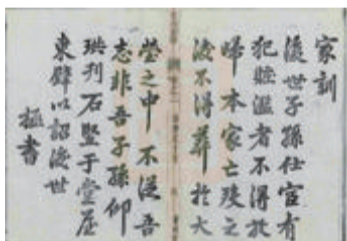 家訓
後世子孫仕宦有
犯贓濫者不得放
歸本家亡殁之
後不得葬於大
塋之中不從吾
志非吾子孫仰
珙刊石竪于堂屋
東壁以詔後世
拯書